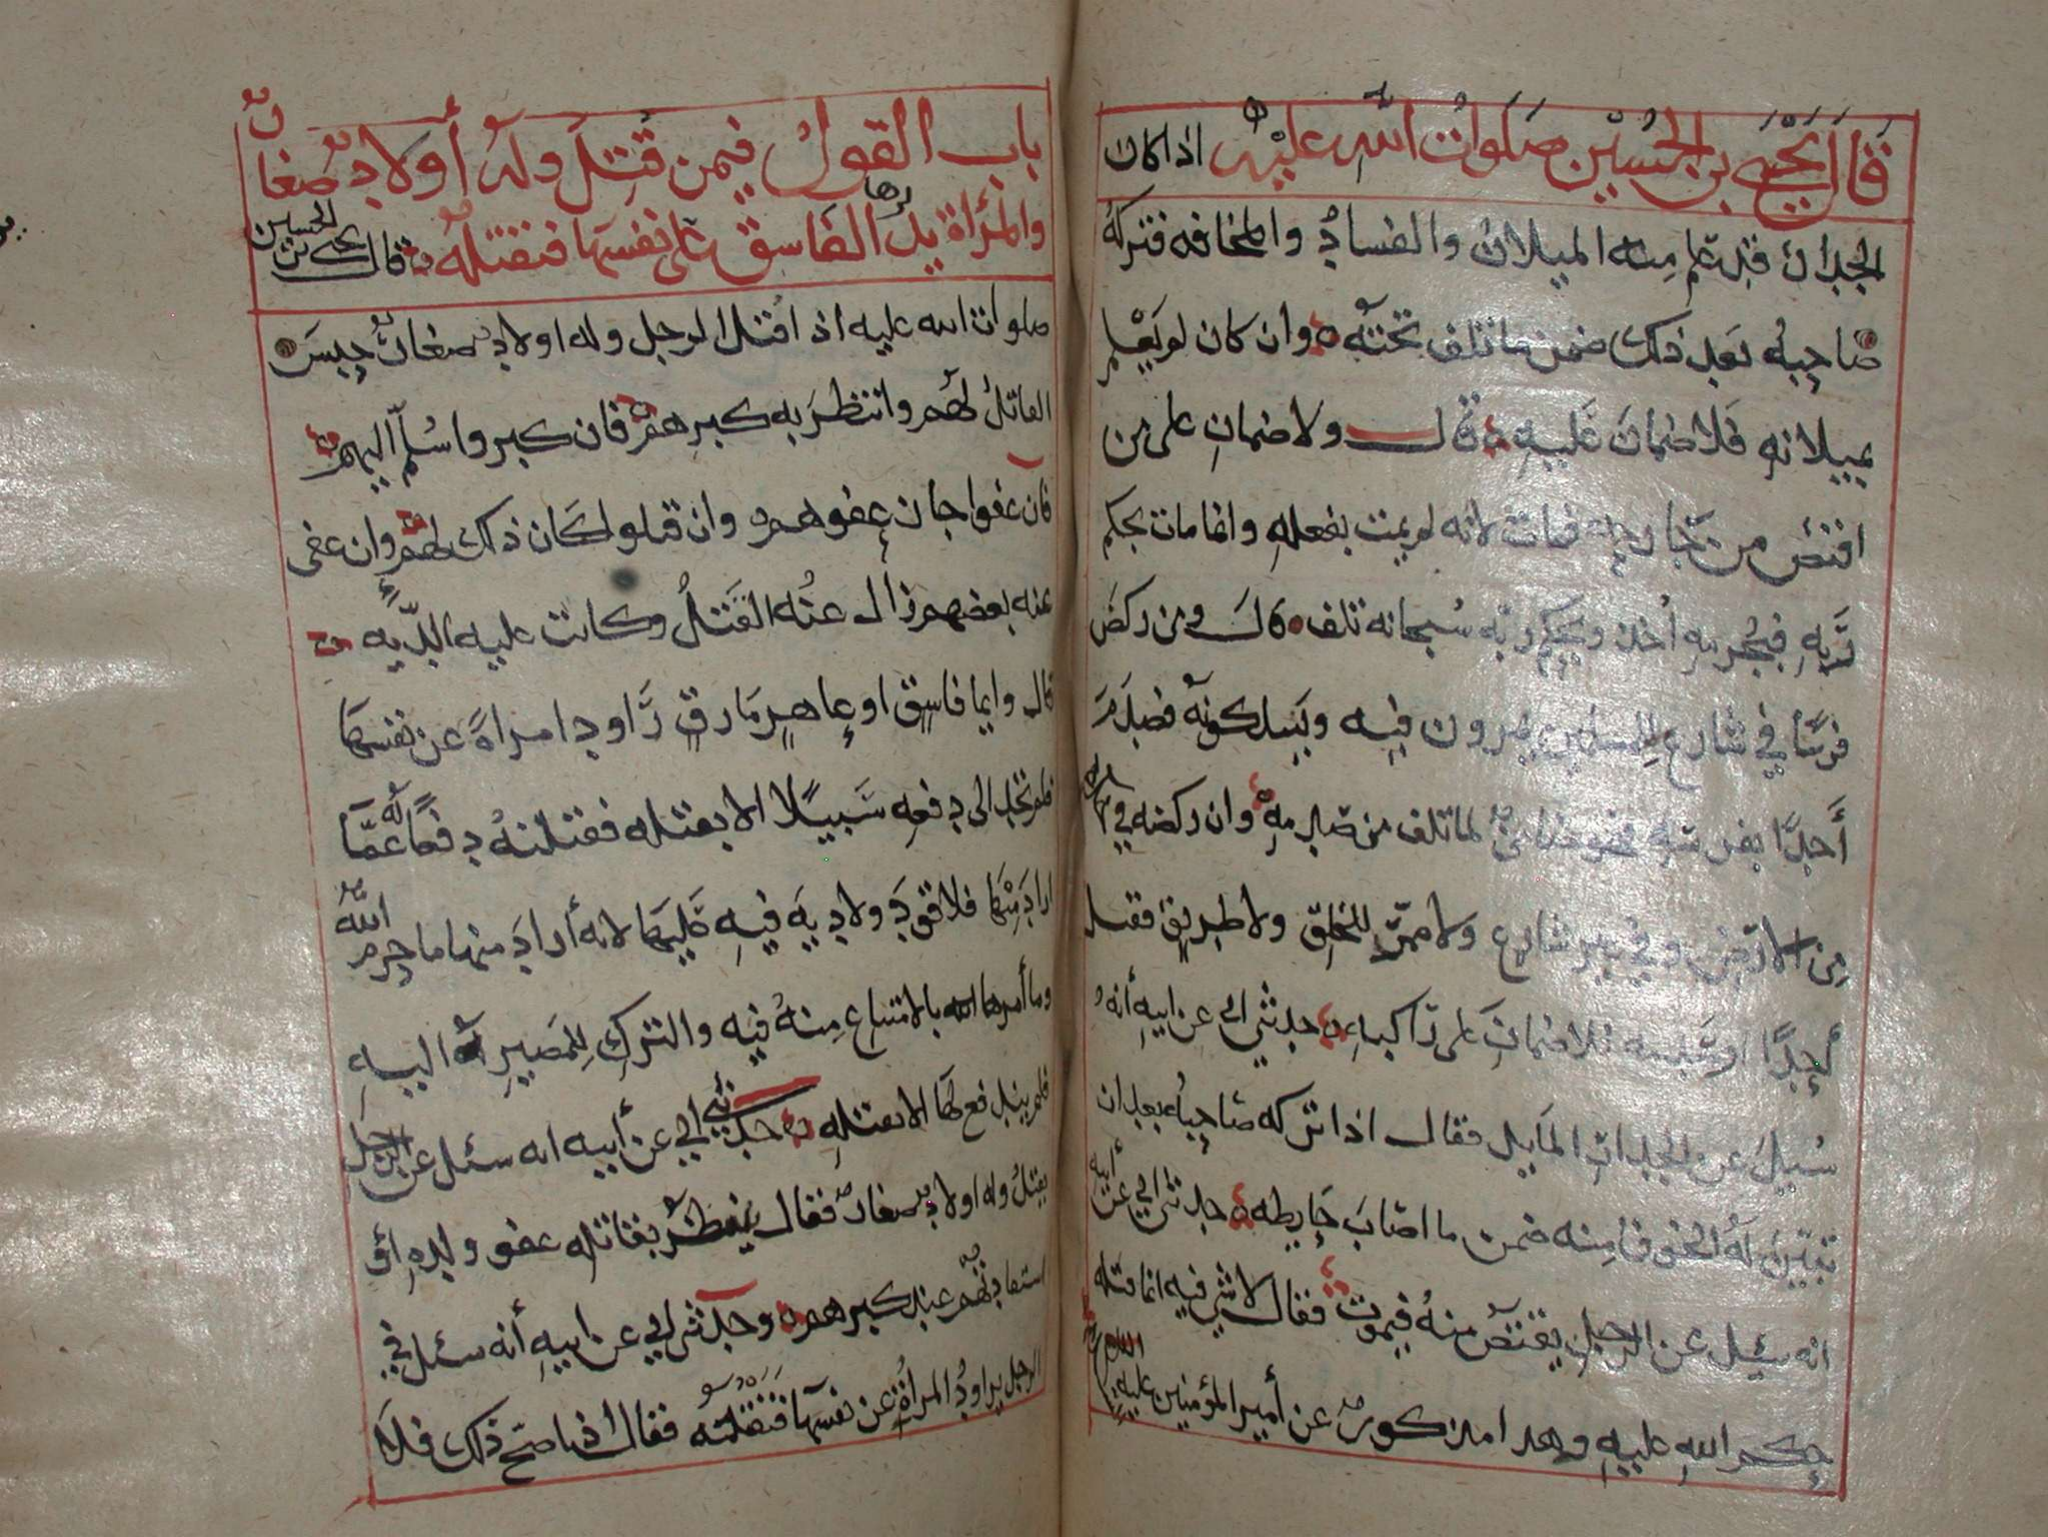 قال يحيى بن الحسين صلوات الله عليه اذا كان
الجدار قد علم منه الميلان والفساد والمخافه فتركه
صاحبه بعد ذلك ضمن ما تلف تحته وان كان لم يعلم
بميلانه فلا ضمان عليه قال ولا ضمان على من
اقتص من جارحه فمات لانه لم يمت بفعله وانما مات بحكم
ربه فبجرمه أخذ وبحكم ربه سبحانه تلف قال ومن ركض
فرسًا في شارع للمسلمين يمرون فيه ويسلكونه فصدم
أحدًا بفرسه فهو ضامن لما تلف من صدمه وان ركضه في صحراء
من الارض وفي غير شارع ولا ممر للخلق ولا طريق فقتل
أحدًا فلا ضمان على راكبه حدثني ابي عن ابيه أنه
سئل عن الجدار المايل فقال اذا تركه صاحبه بعد ان
تبين له الخوف منه ضمن ما اصاب حايطه حدثني ابي عن أبيه
انه سئل عن الرجل يقتص منه فيموت فقال لا شي فيه انما قتله
حكم الله عليه وهذا مذكور عن أمير المؤمنين عليه السلام
باب القول فيمن قُتل وله أولاد صغار
والمرأة يدرها الفاسق على نفسها فتقتله قال يحيى بن الحسين
صلوات الله عليه اذا قتل الرجل وله اولاد صغار حبس
القاتل لهم وانتظر به كبرهم فان كبروا سُلم اليهم
فان عفوا جاز عفوهم وان قتلوا كان ذلك لهم وإن عفى
عنه بعضهم زال عنه القتل وكانت عليه الدية
قال وايما فاسق او عاهر مارق راود امراة عن نفسها
فلم تجد الى دفعه سبيلا الا بقتله فقتلته دفعًا له عمّا
اراد منها فلا قود ولا دية فيه عليها لانه أراد منها ما حرم الله
وما أمرها الله بالامتناع منه فيه والترك للمصير له اليه
فلم يندفع لها الا بقتله حدثني ابي عن أبيه انه سئل عن الرجل
يقتل وله اولاد صغار فقال ينتظر بقاتله عفو ولده أو
استقادتهم عند كبرهم وحدثني ابي عن ابيه أنه سئل في
الرجل يراود المرأة عن نفسها فتقتله فقال اذا صح ذلك فلا